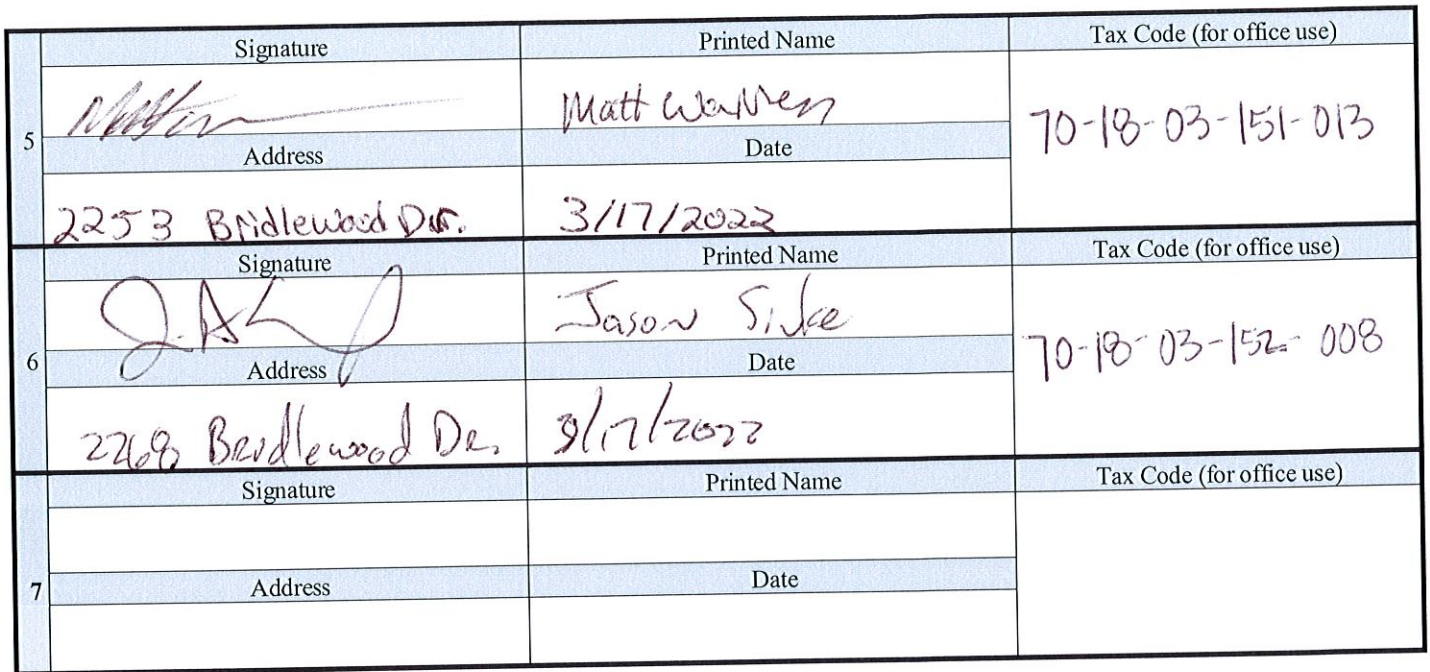 Signature Printed Name Tax Code (for office use)
Matt Warren
70-18-03-151-013
5
Address Date
2253 Bridlewood Dr. 3/17/2022
Signature Printed Name Tax Code (for office use)
Jason
70-18-03-152-008
6
Address Date
2268 Bridlewood Dr. 3/17/2022
Signature Printed Name Tax Code (for office use)
7
Address Date